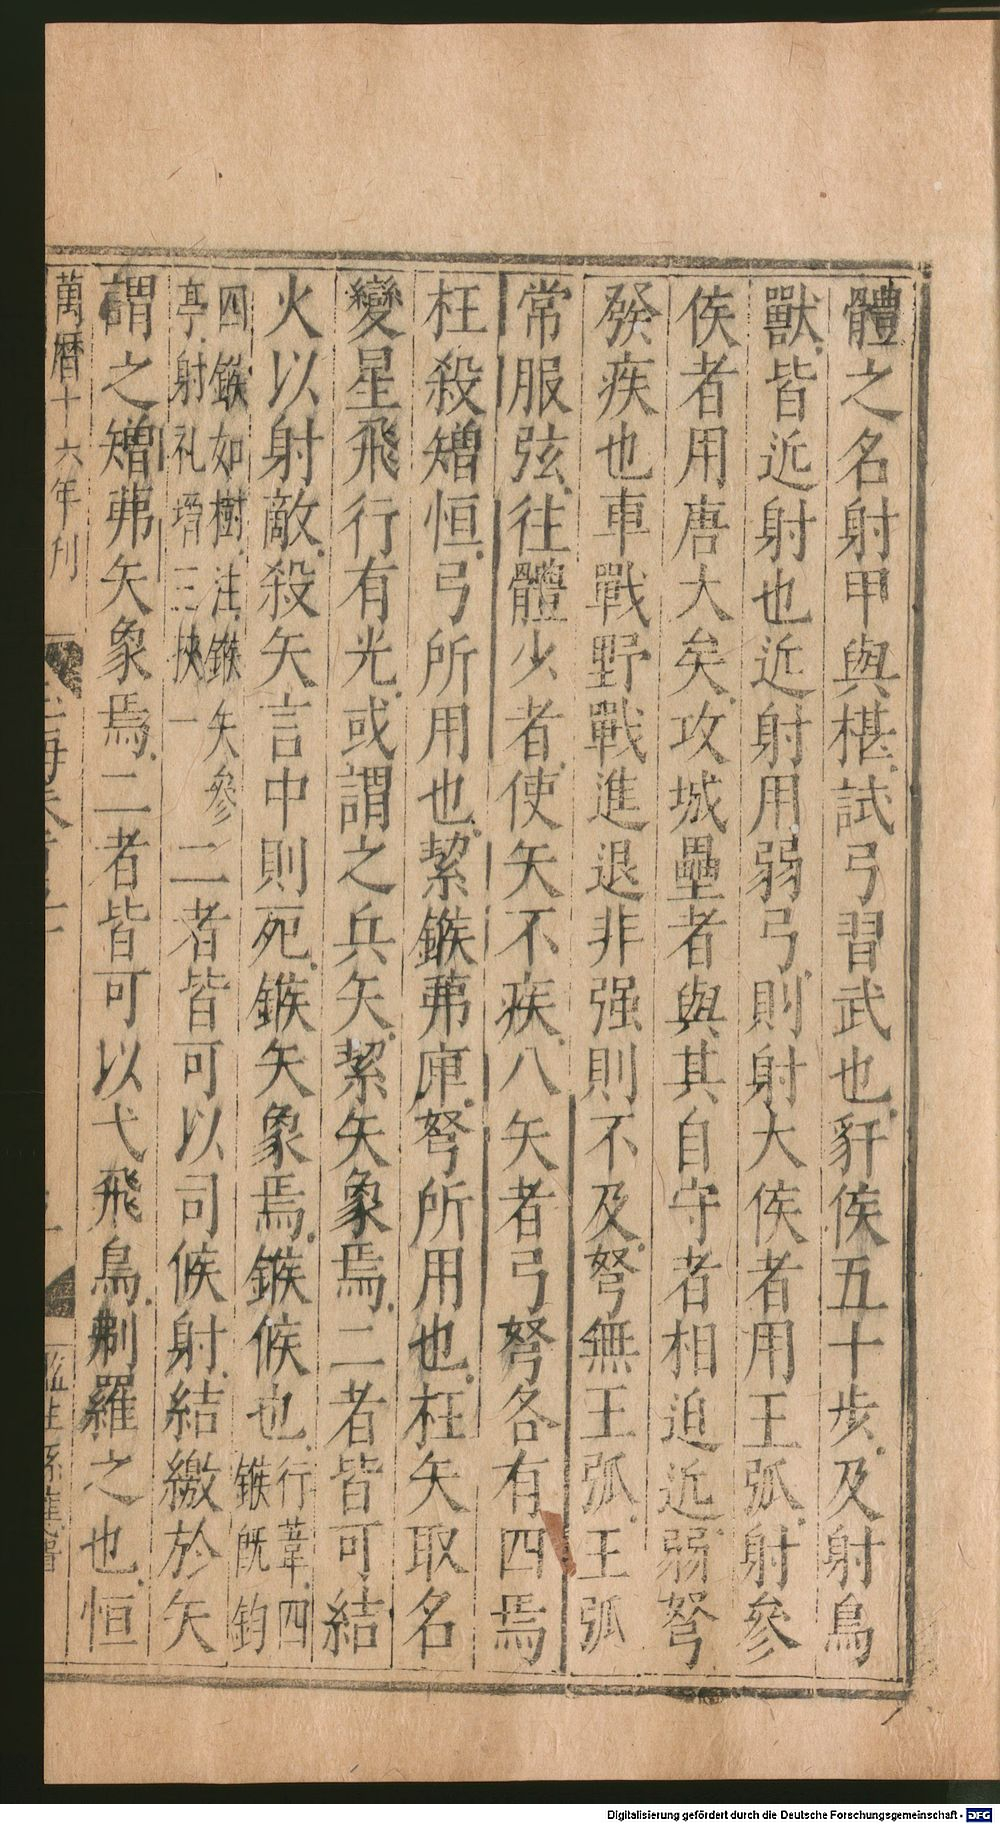 體之名射甲與椹試弓習武也豻侯五十步及射鳥
獸皆近射也近射用弱弓則射大侯者用王弧射參
侯者用唐大矣攻城壘者與其自守者相迫近弱弩
發疾也車戰野戰進退非强則不及弩無王弧王弧
常服弦往體少者使矢不疾八矢者弓弩各有四焉
枉殺矰恒弓所用也絜鍭茀庳弩所用也枉矢取名
變星飛行有光或謂之兵矢絜矢象焉二者皆可結
火以射敵殺矢言中則死鍭矢象焉鍭候也行葦四鍭旣鈞
四鍭如樹注鍭矢參亭射礼壻三挾一二者皆可以司候射結繳於矢
謂之矰茀矢象焉二者皆可以弋飛鳥刜羅之也恒
萬曆十六年刊
Digitalisierung gefördert durch die Deutsche Forschungsgemeinschaft - DFG